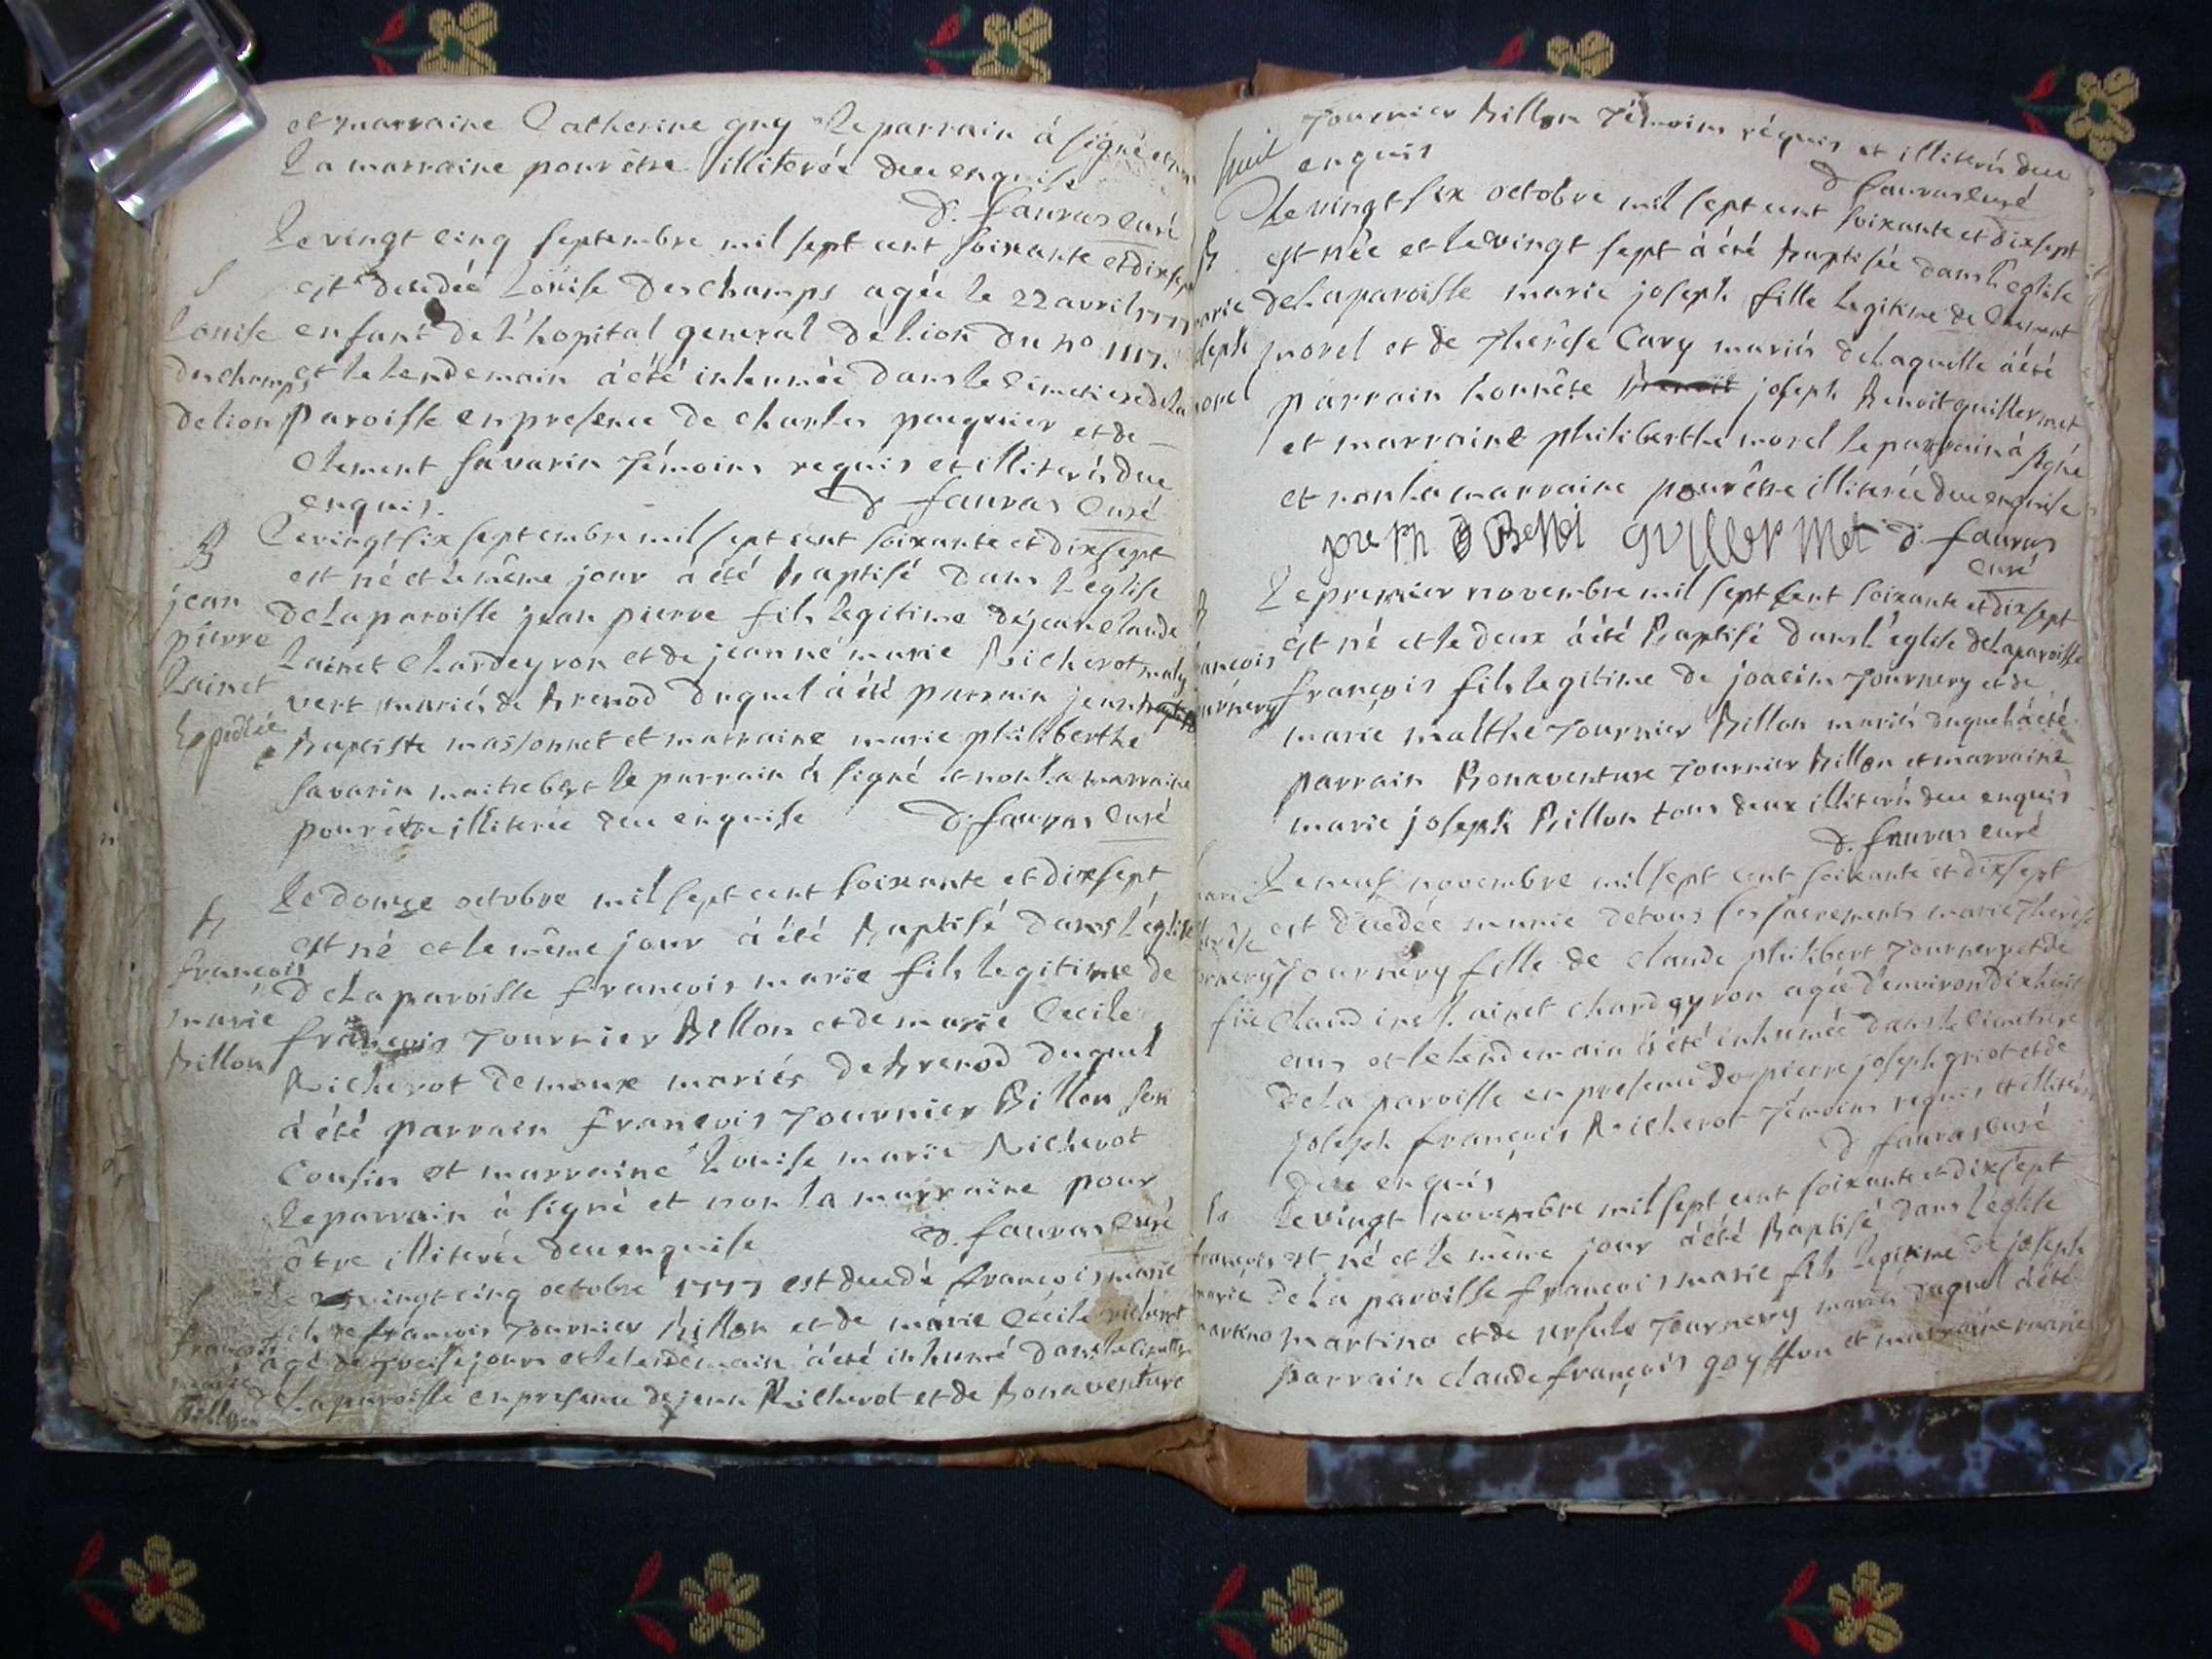 et marraine Catherine guy le parrain à signé et non
La marraine pour être illiterée deue enquise
d. fauvas Curé
Le vingt cinq septembre mil sept cent soixante et dix sept
S
est decedée Loüise Deschamps agée le 22 avril 1777
Louise
enfant de l'hopital general de lion du no 1117.
deschamps
et le lendemain à été inhumée dans le Cimetiere de la
de lion
Paroisse en presence de charles pacquier et de
Clement savarin témoins requis et illiterés due
enquis.
d fauvas Curé
B
Le vingt six septembre mil sept cent soixante et dix sept
est né et le même jour à été baptisé dans l'église
jean
de la paroisse jean pierre fils legitime de jean claude
pierre
Lainet Chardeyron et de jeanne marie Richerot
Lainet
vert mariés de brenod duquel à été parrain jean
Expediée
baptiste massonnet et marraine marie philiberthe
savarin le parrain à signé et non la marraine
pour être illiterée deue enquise
d. fauvas Curé
Le douze octobre mil sept cent soixante et dix sept
B
est né et le même jour à été baptisé dans l'église
francois
de la paroisse francois marie fils legitime de
marie
françois Tournier Billon et de marie Cecile
billon
Richerot demoux mariés de brenod duquel
à été parrain françois Tournier Billon son
Cousin et marraine Louise marie Richerot
Le parrain à signé et non la marraine pour
être illiterée deue enquise
d. fauvas Curé
Le vingt cinq octobre 1777 est decedé françois marie
S
fils de françois Tournier billon et de marie Cécile richerot
francois
agé de treise jours et le lendemain à été inhumé dans le
marie
de la paroisse en presence de jean Richerot et de bonaventure
Billon
Tournier billon Témoins réquis et illiterés due
huit
enquis
d fauvas curé
Le vingt six octobre mil sept cent soixante et dix sept
B
est née et le vingt sept à été baptisée dans l'église
marie
de la paroisse marie joseph fille legitime de Clement
joseph
morel et de Therêse Cary mariés de laquelle à été
morel
parrain honnête joseph benoit guillermet
et marraine philiberthe morel le parrain à signé
et non la marraine pour être illiterée deue enquise
guillermet
d. fauvas
curé
Le premier novembre mil sept cent soixante et dix sept
B
est né et le deux à été Baptisé dans l'église de la paroisse
francois
françois fils legitime de joacim Tournery et de
tournery
marie malthe Tournier Billon mariés duquel à été
parrain Bonaventure Tournier Billon et marraine
marie joseph Billon tous deux illiterés due enquis
d. fauvas curé
Le neuf novembre mil sept cent soixante et dix sept
marie
est decedée munie de tous ses sacrements marie Therêse
therêse
Tournery fille de Claude philibert Tournery et de
tournery
Claudine Lainet chardeyron agée d'environ dix huit
ans et le lendemain à été inhumée dans le cimetiere
de la paroisse en presence de pierre joseph griot et de
joseph françois Richerot Témoins requis et illiterés
due enquis
d fauvas Curé
Le vingt novembre mil sept cent soixante et dix sept
francois
est né et le même jour à été Baptisé dans l'église
marie
de la paroisse francois marie fils legitime de joseph
martino
martino et de ursule Tournery mariés duquel à été
parrain claude françois goyffon et marraine marie